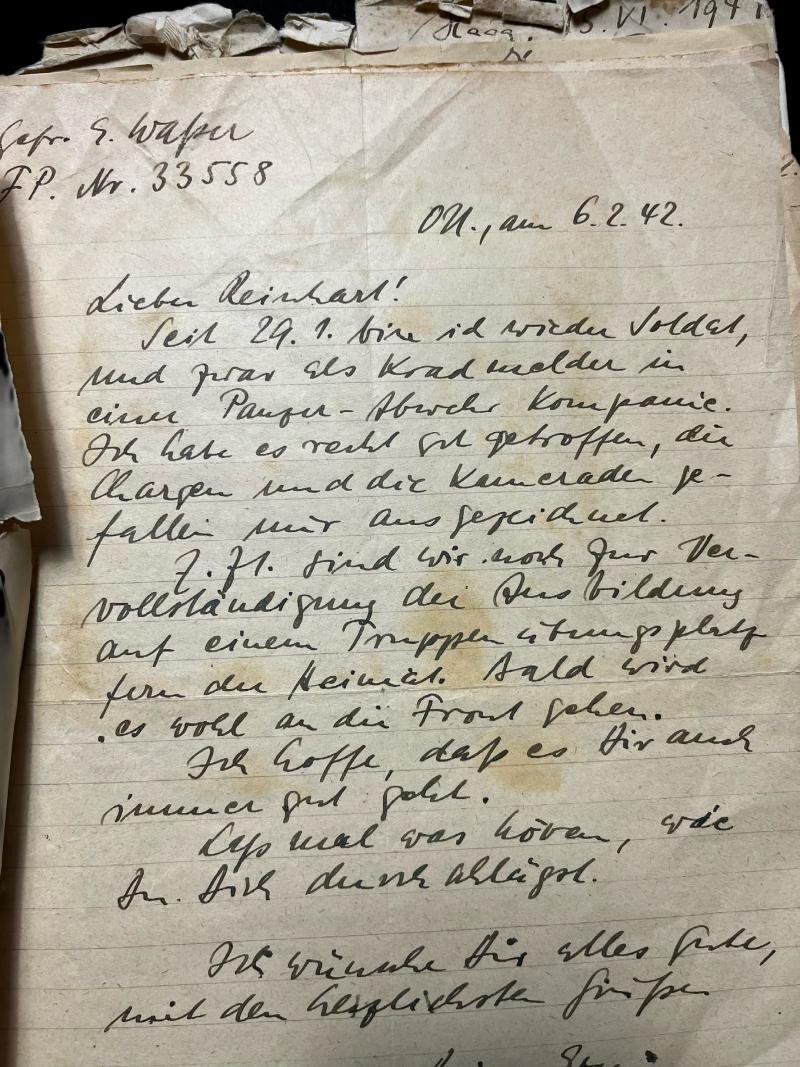 Haag. 5. VI. 194
Gefr. E. Waßer
FP. Nr. 33558
OU., am 6.2.42.
Lieber Reinhart!
Seit 29. 1. bin ich wieder Soldat,
und zwar als Kradmelder in
einer Panzer-Abwehr Kompanie.
Ich habe es recht gut getroffen, die
Chargen und die Kameraden ge-
fallen mir ausgezeichnet.
Z. Zt. sind wir noch zur Ver-
vollständigung der Ausbildung
auf einem Truppenübungsplatz
fern der Heimat. Bald wird
es wohl an die Front gehen.
Ich hoffe, daß es Dir auch
immer gut geht.
Laß mal was hören, wie
Du Dich durchschlägst.
Ich wünsche Dir alles Gute,
mit den herzlichsten Grüßen